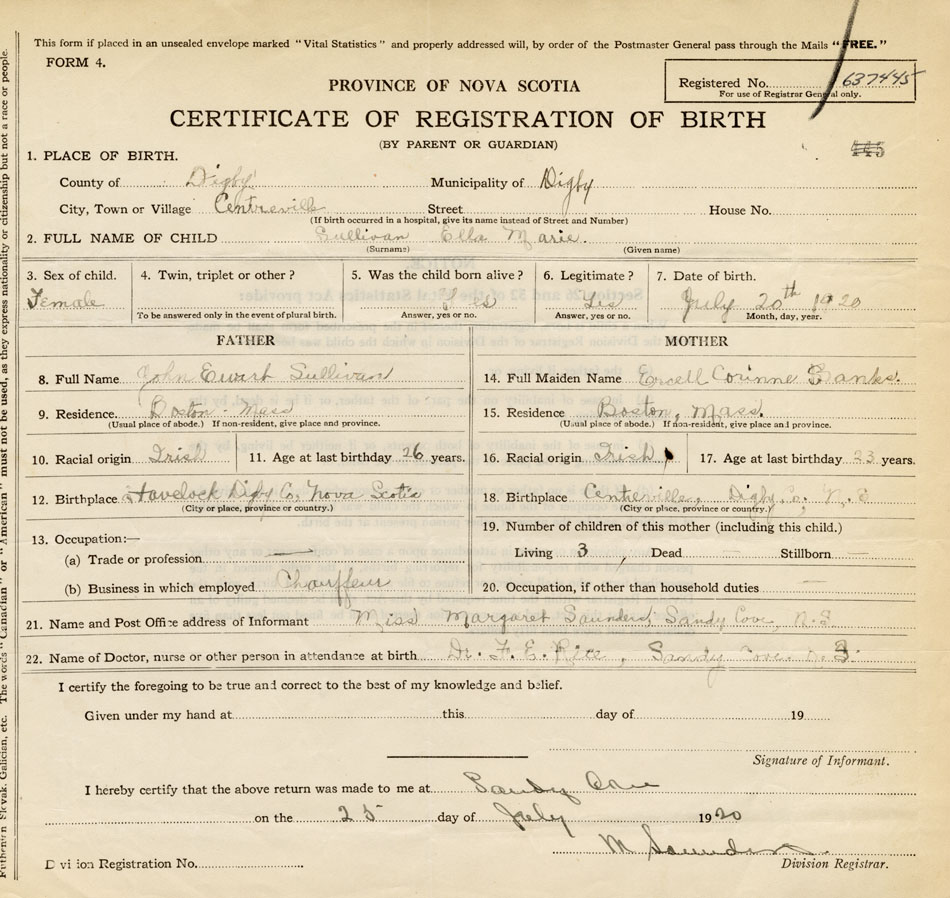 This form if placed in an unsealed envelope marked "Vital Statistics" and properly addressed will, by order of the Postmaster General pass through the Mails "FREE."
FORM 4.
Registered No. 637445
For use of Registrar General only.
PROVINCE OF NOVA SCOTIA
CERTIFICATE OF REGISTRATION OF BIRTH
(BY PARENT OR GUARDIAN)
445
1. PLACE OF BIRTH.
County of Digby Municipality of Digby
City, Town or Village Centreville Street House No.
(If birth occurred in a hospital, give its name instead of Street and Number)
2. FULL NAME OF CHILD Sullivan Ella Marie.
(Surname) (Given name)
3. Sex of child. 4. Twin, triplet or other? 5. Was the child born alive? 6. Legitimate? 7. Date of birth.
Female Yes Yes July 20th 1920
To be answered only in the event of plural birth. Answer, yes or no. Answer, yes or no. Month, day, year.
FATHER MOTHER
8. Full Name John Ewart Sullivan 14. Full Maiden Name Corinne
9. Residence Boston - Mass 15. Residence Boston, Mass.
(Usual place of abode.) If non-resident, give place and province. (Usual place of abode.) If non-resident, give place and province.
10. Racial origin Irish 11. Age at last birthday 26 years. 16. Racial origin Irish 17. Age at last birthday 23 years.
12. Birthplace Havelock Digby Co, Nova Scotia 18. Birthplace Centreville, Digby Co, N.S
(City or place, province or country.) (City or place, province or country.)
19. Number of children of this mother (including this child.)
13. Occupation:—
(a) Trade or profession — Living 3, Dead — Stillborn —
(b) Business in which employed Chauffeur 20. Occupation, if other than household duties —
21. Name and Post Office address of Informant Miss Margaret Saunders, Sandy Cove, N.S
22. Name of Doctor, nurse or other person in attendance at birth Dr. F. E. Rice, Sandy Cove N.S.
I certify the foregoing to be true and correct to the best of my knowledge and belief.
Given under my hand at this day of 19
Signature of Informant.
I hereby certify that the above return was made to me at Sandy Cove
on the 25 day of July 1920
M Saunders
Division Registration No. Division Registrar.
The words "Canadian" or "American" must not be used, as they express nationality or citizenship but not a race or people.